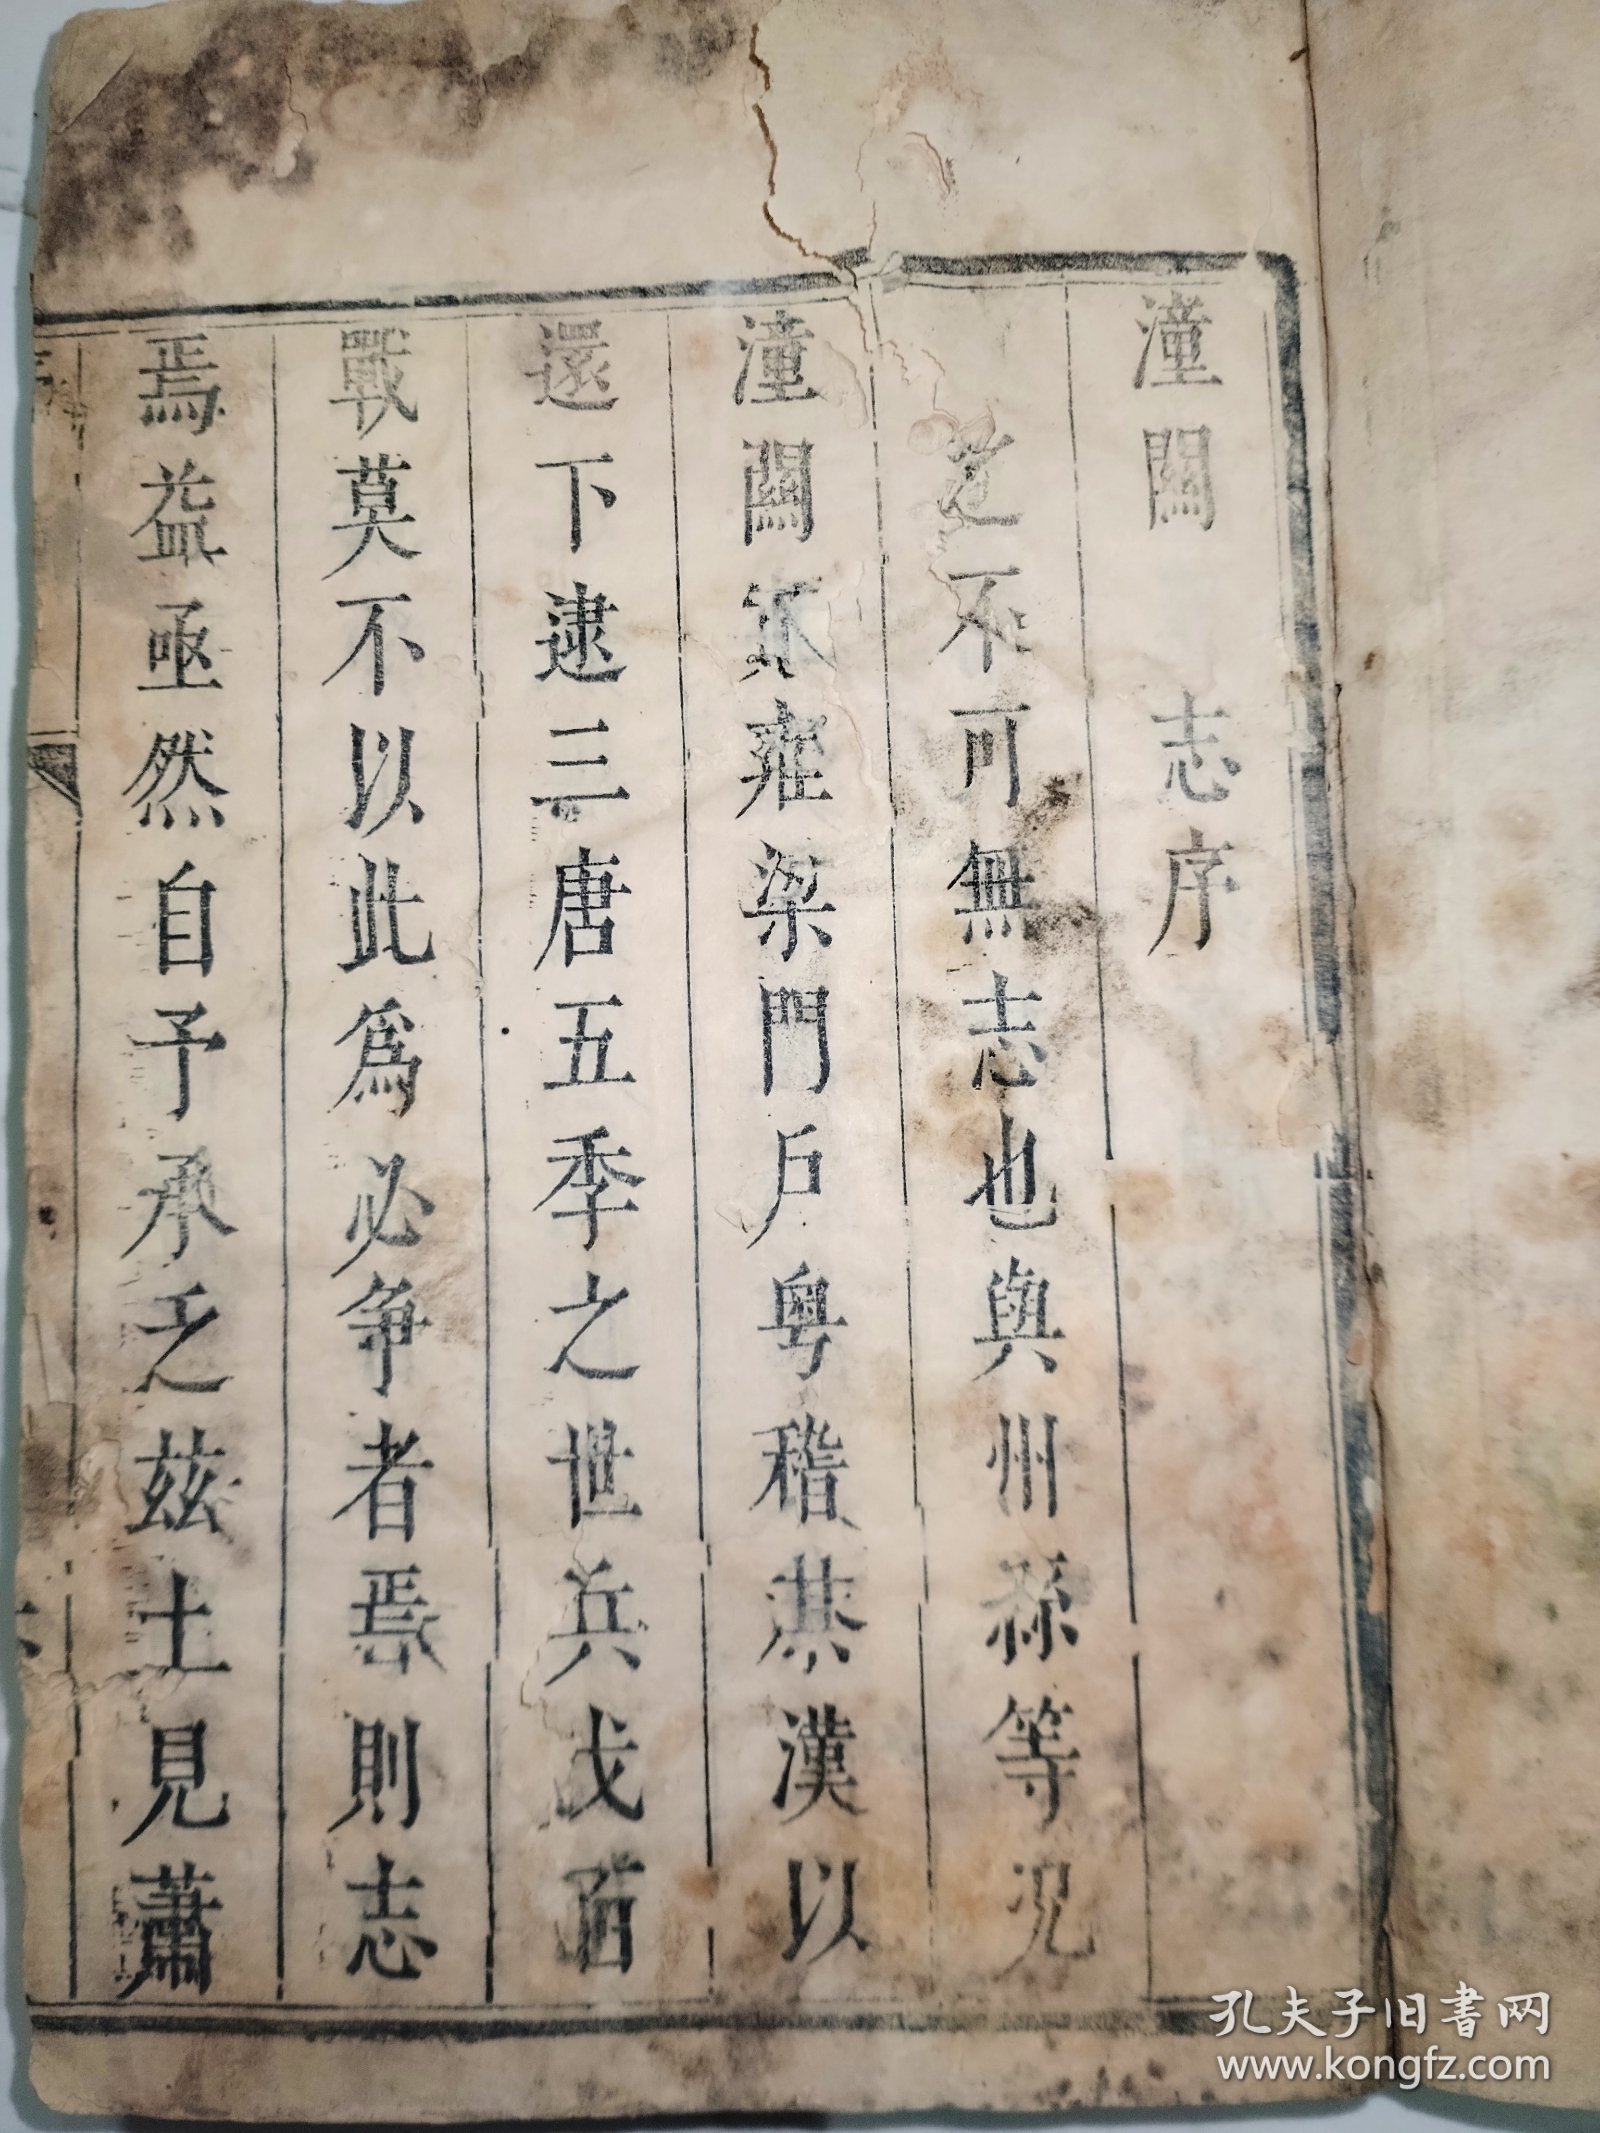 潼關志序
之不可無志也與州縣等況
潼關雍梁門戶粤稽漢以
還下逮三唐五季之世兵戈
戰莫不以此為必爭者焉則志
焉益亟然自予承乏茲土見蕭
孔夫子旧書网
www.kongfz.com